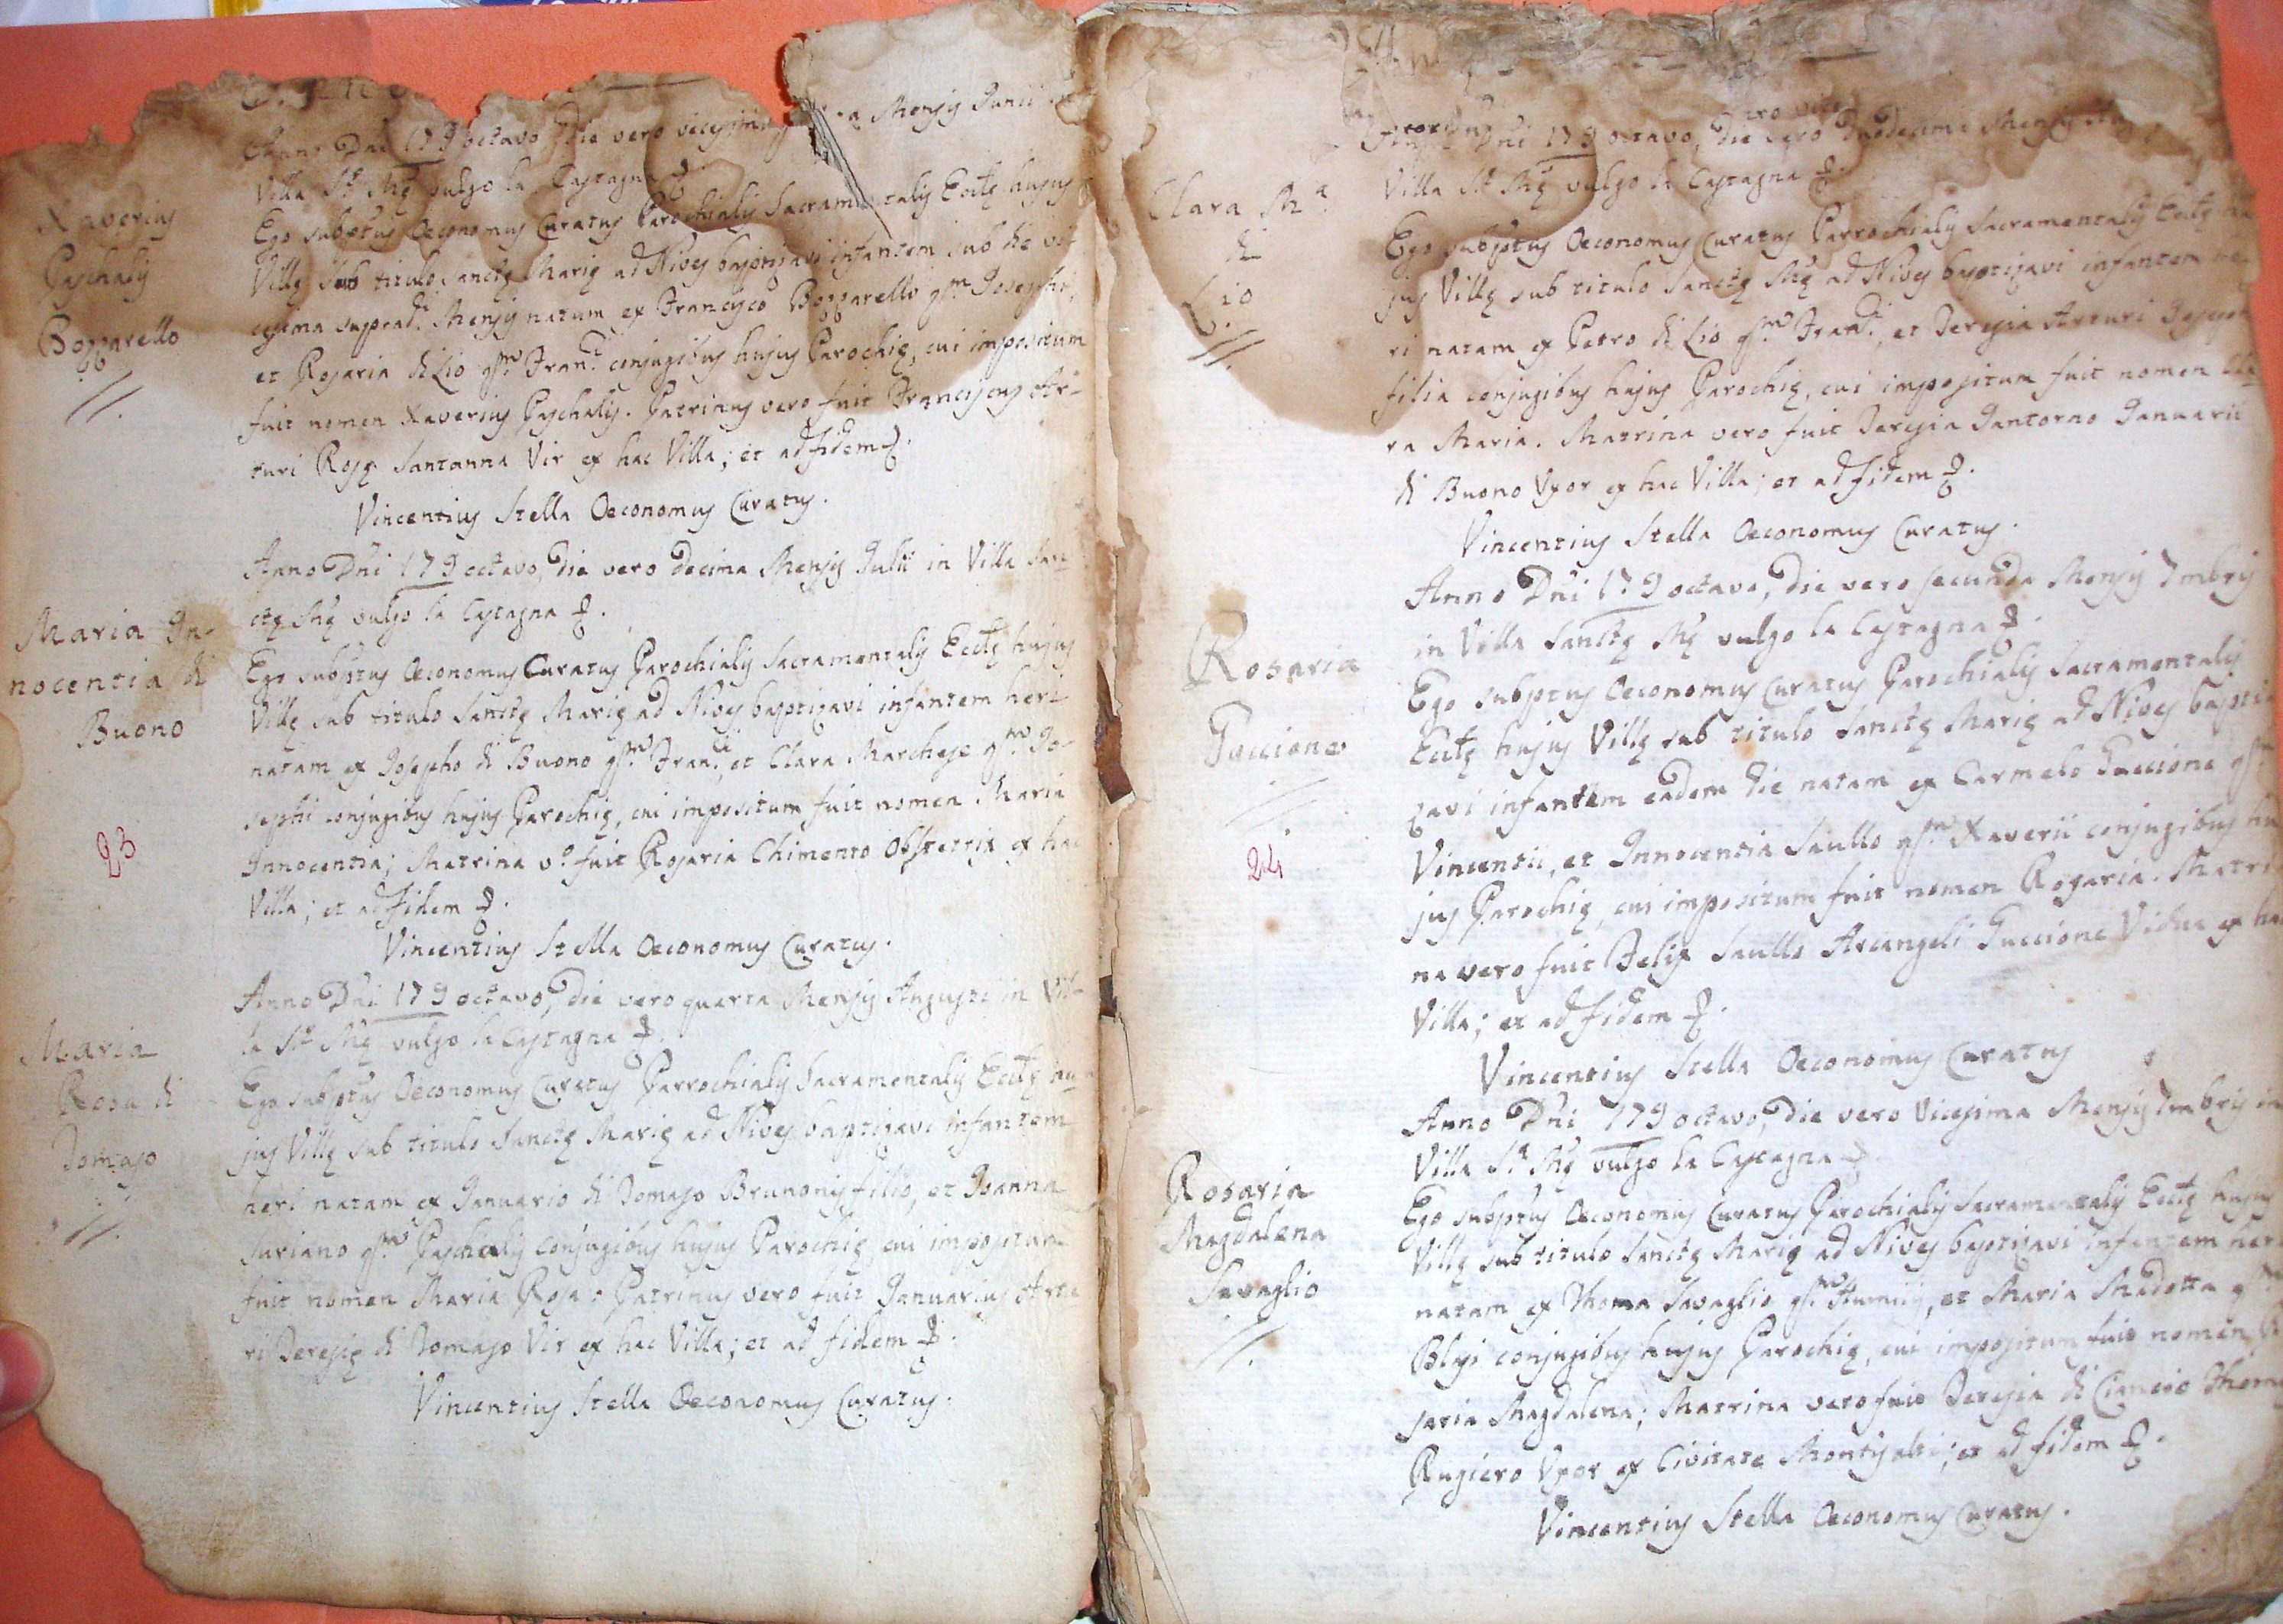 Xaverius
Paschalis
Bozzarello
//.
Anno Dni 179 octavo, die vero vicesima Mensis Junii
Villa Sᵃ Mę vulgo la Castagna
Ego subptus Oeconomus Curatus Parochialis Sacramentalis Ecclę hujus
Villę sub titulo Sanctę Marię ad Nives baptizavi infantem sub die vi-
cesima suprad. Mensis natum ex Francisco Bozzarello qm Josephi,
et Rosaria di Lio qm Franci conjugibus hujus Parochię, cui impositum
fuit nomen Xaverius Paschalis. Patrinus vero fuit Franciscus Ar-
turi Rosę Santanna Vir ex hac Villa; et ad fidem
Vincentius Stella Oeconomus Curatus.
Maria In-
nocentia di
Buono
Anno Dni 179 octavo, die vero decima Mensis Julii in Villa San-
ctę Mę vulgo la Castagna
Ego subptus Oeconomus Curatus Parochialis Sacramentalis Ecclę hujus
Villę sub titulo Sanctę Marię ad Nives baptizavi infantem heri
natam ex Josepho di Buono qm Franci, et Clara Marchese qm Jo-
sephi conjugibus hujus Parochię, cui impositum fuit nomen Maria
Innocentia; Matrina vo fuit Rosaria Chimento Obstetrix ex hac
Villa; et ad fidem
Vincentius Stella Oeconomus Curatus.
23
Maria
Rosa di
Tomaso
//.
Anno Dni 179 octavo, die vero quarta Mensis Augusti in Vil-
la Sᵃ Mę vulgo la Castagna
Ego subptus Oeconomus Curatus Parrochialis Sacramentalis Ecclę hu-
jus Villę sub titulo Sanctę Marię ad Nives baptizavi infantem
heri natam ex Januario di Tomaso Brunonis filio, et Joanna
Suriano qm Paschalis conjugibus hujus Parochię cui impositum
fuit nomen Maria Rosa. Patrinus vero fuit Januarius Artu
ri Teresię di Tomaso Vir ex hac Villa; et ad fidem
Vincentius Stella Oeconomus Curatus.
Clara Mᵃ
di
Lio
//
Dni 179 octavo, die vero duodecima Mensis
Villa Sᵃ Mę vulgo la Castagna
Ego subptus Oeconomus Curatus Parrochialis Sacramentalis Ecclę hu
jus Villę sub titulo Sanctę Mę ad Nives baptizavi infantem he
ri natam ex Petro di Lio qm Franci, et Teresia Arturi
filia conjugibus hujus Parochię, cui impositum fuit nomen Cla
ra Maria. Matrina vero fuit Teresia Jantorno Januarii
di Buono Uxor ex hac Villa; et ad fidem
Vincentius Stella Oeconomus Curatus.
Rosaria
Guccione
//
Anno Dni 179 octavo, die vero secunda Mensis 7mbris
in Villa Sanctę Mę vulgo la Castagna
Ego subptus Oeconomus Curatus Parochialis Sacramentalis
Ecclę hujus Villę sub titulo Sanctę Marię ad Nives bapti
zavi infantem eadem die natam ex Carmelo Guccione qm
Vincentii, et Innocentia Saullo qm Xaverii conjugibus hu
jus Parochię, cui impositum fuit nomen Rosaria. Matri
na vero fuit Felix Saullo Arcangeli Guccione Vidua ex hac
Villa; et ad fidem
Vincentius Stella Oeconomus Curatus
24
Rosaria
Magdalena
Savaglio
//.
Anno Dni 179 octavo, die vero Vicesima Mensis 7mbris in
Villa Sᵃ Mę vulgo la Castagna
Ego subptus Oeconomus Curatus Parochialis Sacramentalis Ecclę hujus
Villę sub titulo Sanctę Marię ad Nives baptizavi infantem heri
natam ex Thoma Savaglio qm, et Maria Madotta qm
Blasi conjugibus hujus Parochię, cui impositum fuit nomen Ro
saria Magdalena; Matrina vero fuit Teresia di Ciancio Thomę
Rugiero Uxor ex Civitate Montisalti; et ad fidem
Vincentius Stella Oeconomus Curatus.